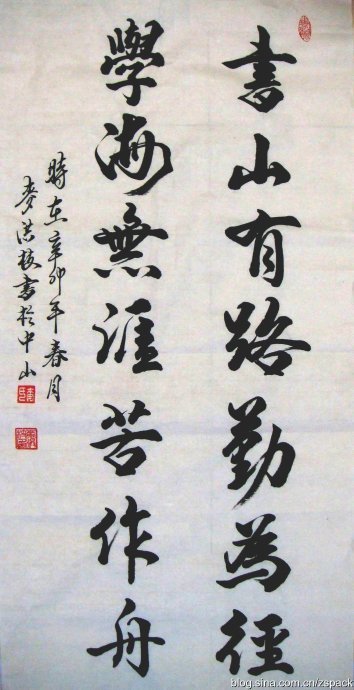 書山有路勤為徑
學海無涯苦作舟
時在辛卯年春月
麥洪枝書於中山
blog.sina.com.cn/zspack